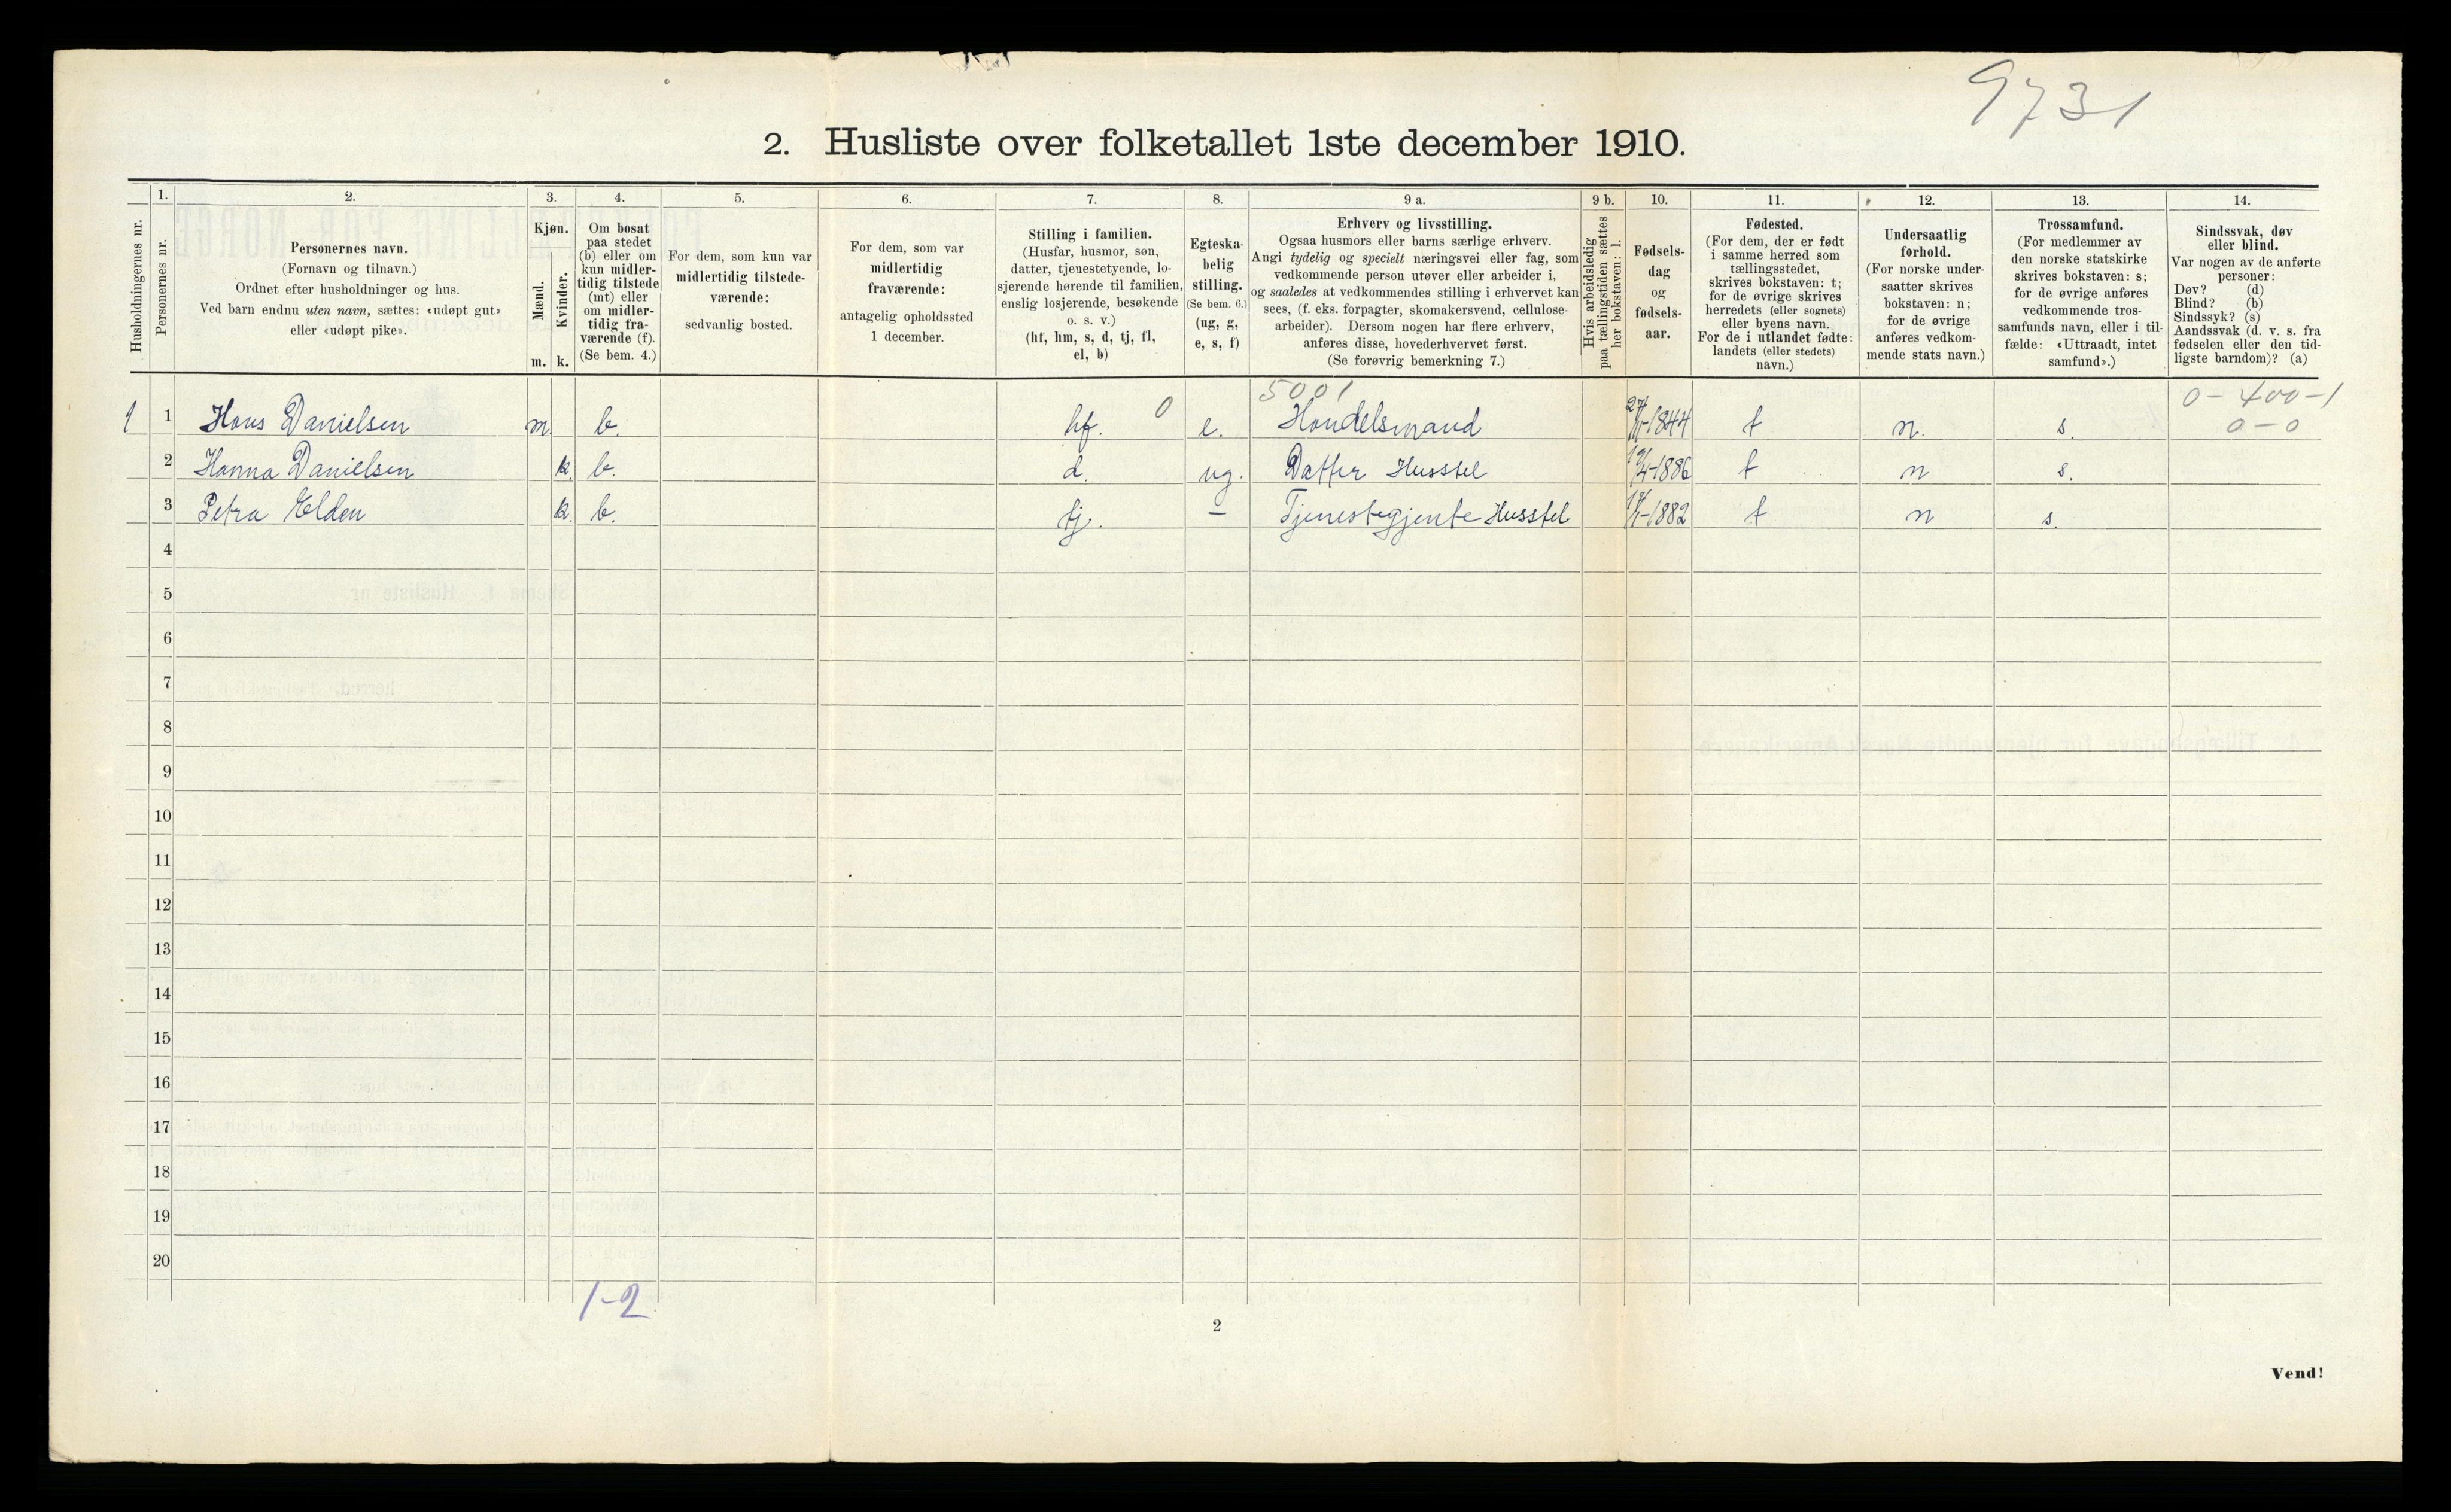 9731
2. Husliste over folketallet 1ste december 1910.
1. 2. 3. 4. 5. 6. 7. 8. 9 a. 9 b. 10. 11. 12. 13. 14.
Husholdningernes nr.
Personernes nr.
Personernes navn.
(Fornavn og tilnavn.)
Ordnet efter husholdninger og hus.
Ved barn endnu uten navn, sættes: «udøpt gut»
eller «udøpt pike».
Kjøn.
Mænd.
Kvinder.
m. k.
Om bosat
paa stedet
(b) eller om
kun midler-
tidig tilstede
(mt) eller
om midler-
tidig fra-
værende (f).
(Se bem. 4.)
For dem, som kun var
midlertidig tilstede-
værende:
sedvanlig bosted.
For dem, som var
midlertidig
fraværende:
antagelig opholdssted
1 december.
Stilling i familien.
(Husfar, husmor, søn,
datter, tjenestetyende, lo-
sjerende hørende til familien,
enslig losjerende, besøkende
o. s. v.)
(hf, hm, s, d, tj, fl,
el, b)
Egteska-
belig
stilling.
(Se bem. 6.)
(ug, g,
e, s, f)
Erhverv og livsstilling.
Ogsaa husmors eller barns særlige erhverv.
Angi tydelig og specielt næringsvei eller fag, som
vedkommende person utøver eller arbeider i,
og saaledes at vedkommendes stilling i erhvervet kan
sees, (f. eks. forpagter, skomakersvend, cellulose-
arbeider). Dersom nogen har flere erhverv,
anføres disse, hovederhvervet først.
(Se forøvrig bemerkning 7.)
Hvis arbeidsledig
paa tællingstiden sættes
her bokstaven: l.
Fødsels-
dag
og
fødsels-
aar.
Fødested.
(For dem, der er født
i samme herred som
tællingsstedet,
skrives bokstaven: t;
for de øvrige skrives
herredets (eller sognets)
eller byens navn.
For de i utlandet fødte:
landets (eller stedets)
navn.)
Undersaatlig
forhold.
(For norske under-
saatter skrives
bokstaven: n;
for de øvrige
anføres vedkom-
mende stats navn.)
Trossamfund.
(For medlemmer av
den norske statskirke
skrives bokstaven: s;
for de øvrige anføres
vedkommende tros-
samfunds navn, eller i til-
fælde: «Uttraadt, intet
samfund».)
Sindssvak, døv
eller blind.
Var nogen av de anførte
personer:
Døv? (d)
Blind? (b)
Sindssyk? (s)
Aandssvak (d. v. s. fra
fødselen eller den tid-
ligste barndom)? (a)
5001 0-400-1
1 1 Hans Danielsen m. b. hf. 0 e. Handelsmand -1844 t n. s. 0-0
2 Hanna Danielsen k. b. d. ug. Datter Husstel -1886 t n s.
3 Petra Elden k. b. tj. – Tjenestegjente Husstel -1882 t n s.
4
5
6
7
8
9
10
11
12
13
14
15
16
17
18
19
20
1-2
2
Vend!